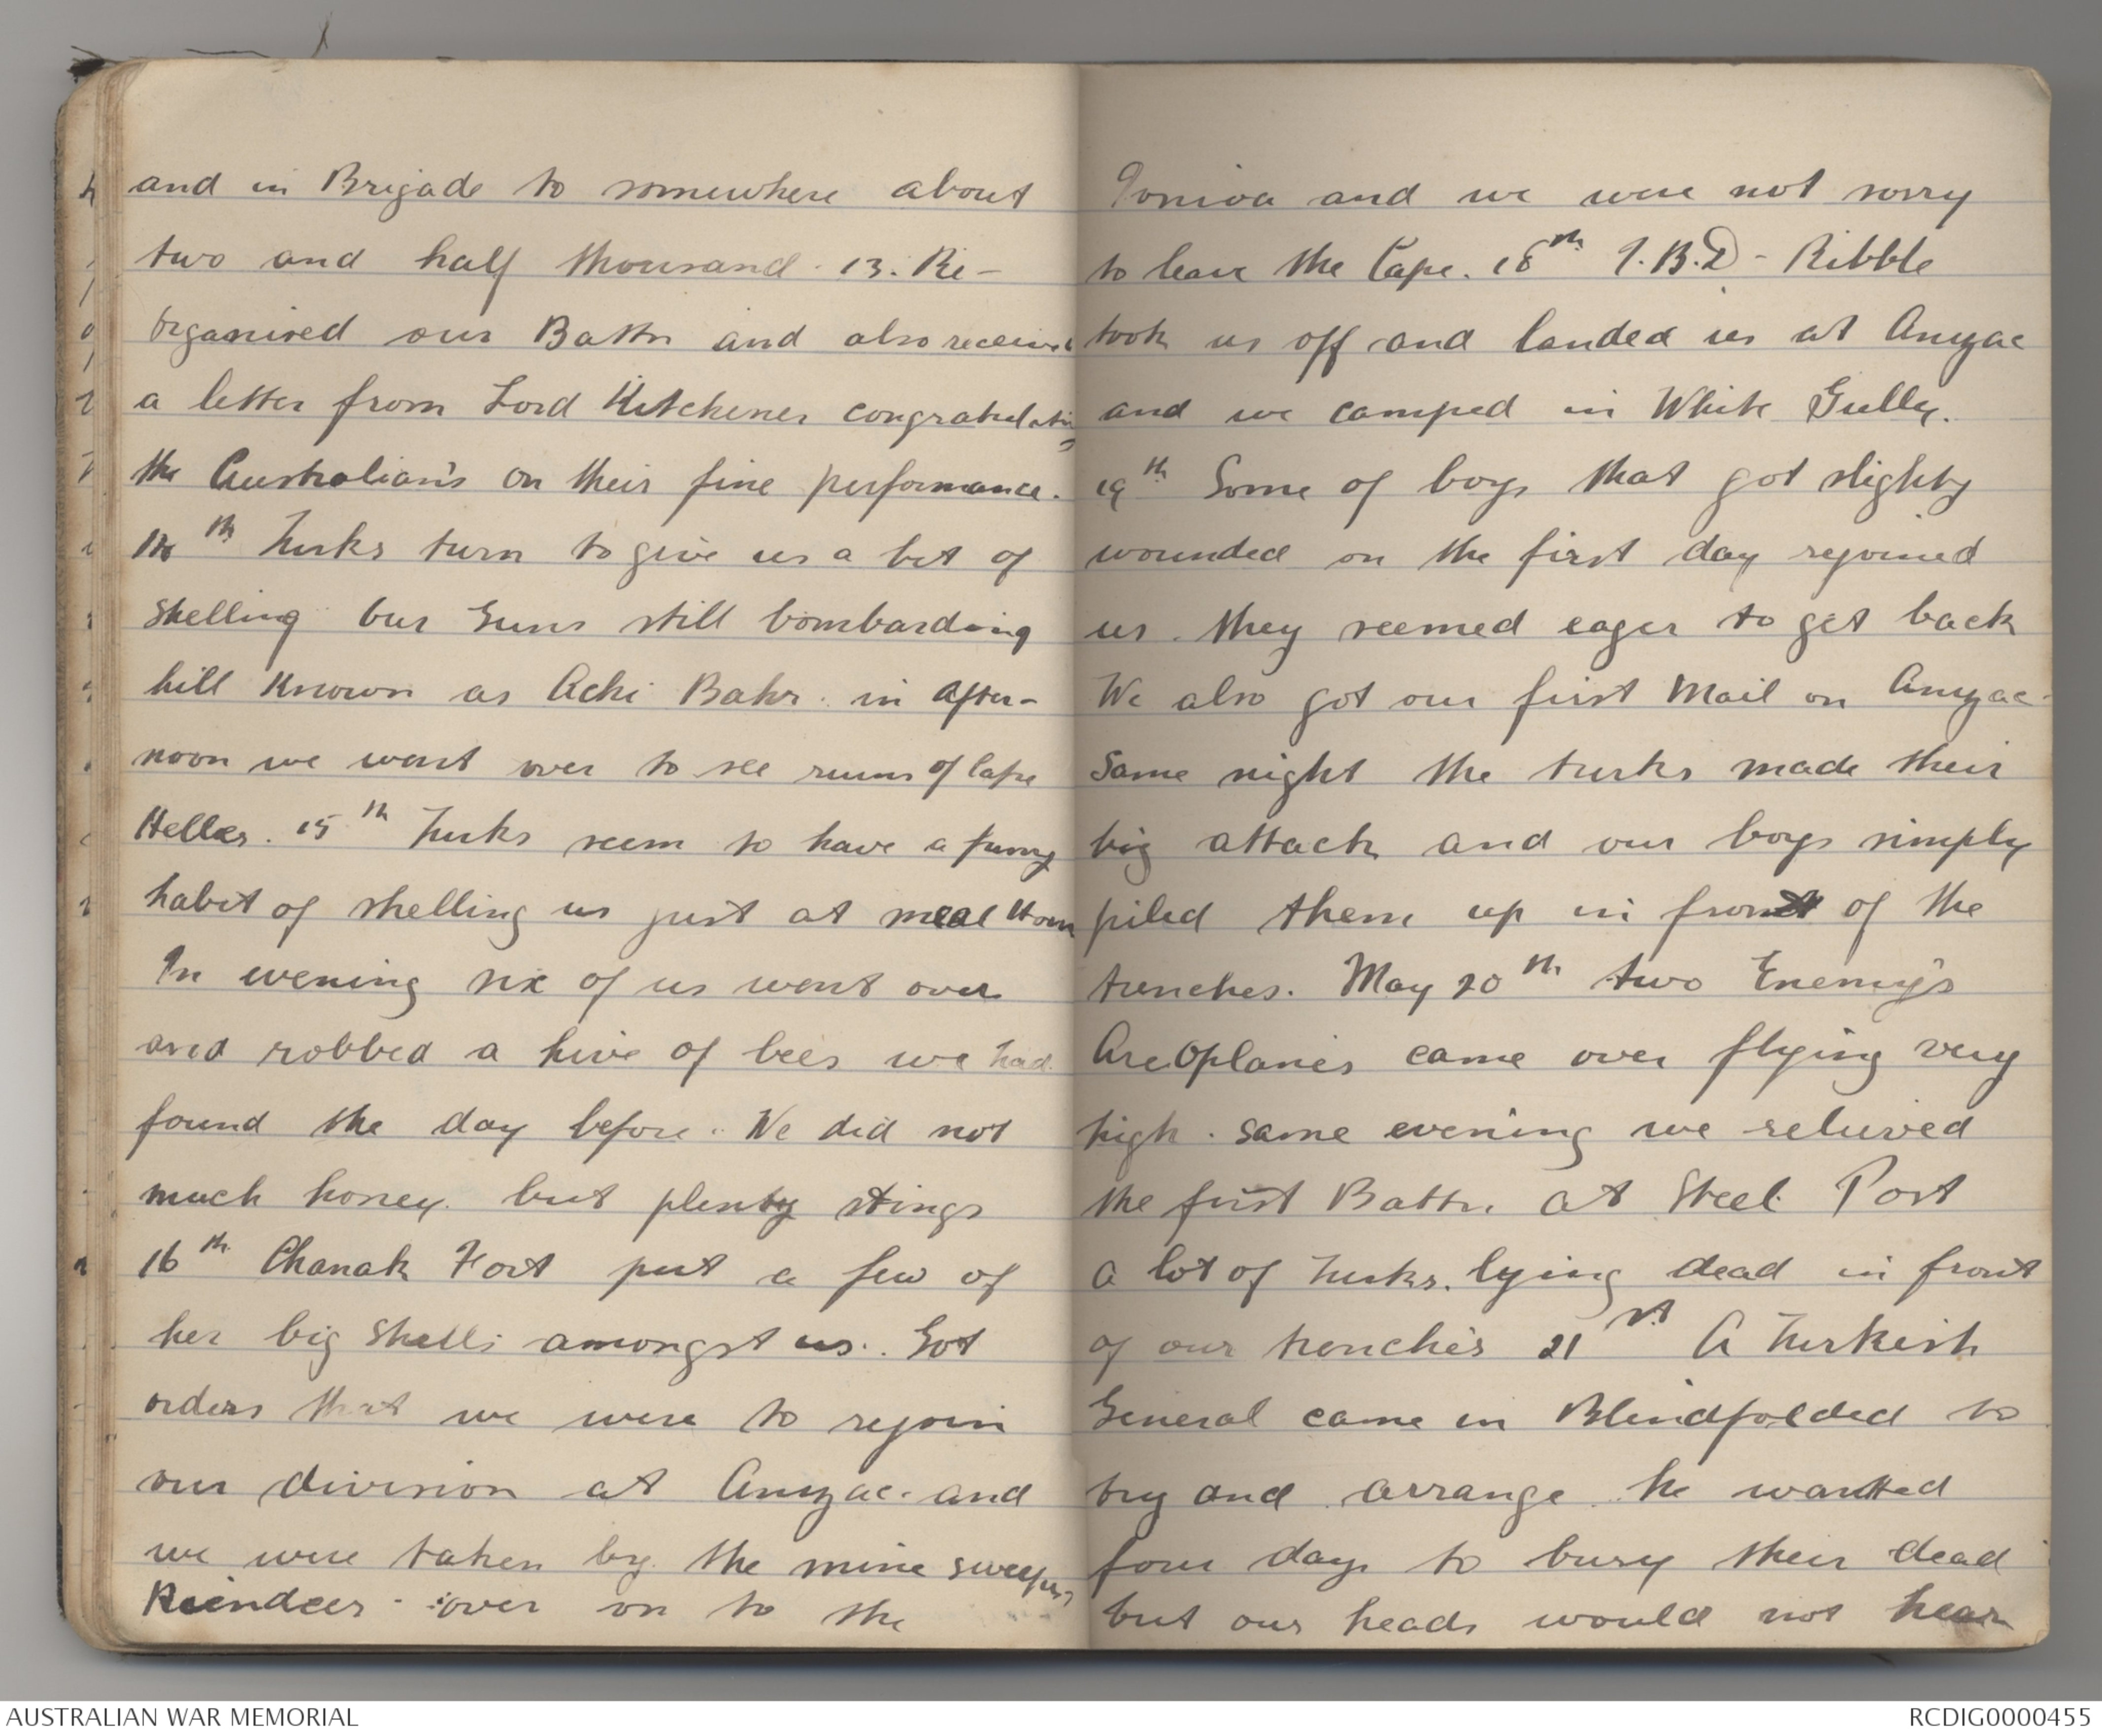 and in Brigade to somewhere about
two and half thousand. 13. Re-
organised our Battn and also received
a letter from Lord Kitchener congratulating
the Australian's on their fine performance.
14th Turks turn to give us a bit of
shelling our Guns still bombarding
hill known as Achi Bahr. in After-
noon we went over to see ruins of Cape
Helles. 15th Turks seem to have a funny
habit of shelling us just at meal Hour
In evening six of us went over
and robbed a hive of bees we had
found the day before. We did not
much honey. but plenty stings
16th Chanak Fort put a few of
her big shells amongst us. Got
orders that we were to rejoin
our division at Anzac. and
we were taken by the mine sweeper,
Reindeer - over on to the
and we were not sorry
to leave the Cape. 18th T.B.D - Ribble
took us off and landed us at Anzac
and we camped in White Gully.
19th Some of boys that got slighty
wounded on the first day rejoined
us. they seemed eager to get back
We also got our first Mail on Anzac-
Same night the turks made their
big attack and our boys simply
piled them up in front of the
trenches. May 20th two Enemy's
AreOplanes came over flying very
high. same evening we relieved
the first Battn. at Steel Post
a lot of Turks. lying dead in front
of our trenches 21st A Turkish
General came in Blindfolded to
try and arrange he wanted
four days to bury their dead
but our heads would not hear
AUSTRALIAN WAR MEMORIAL
RCDIG0000455